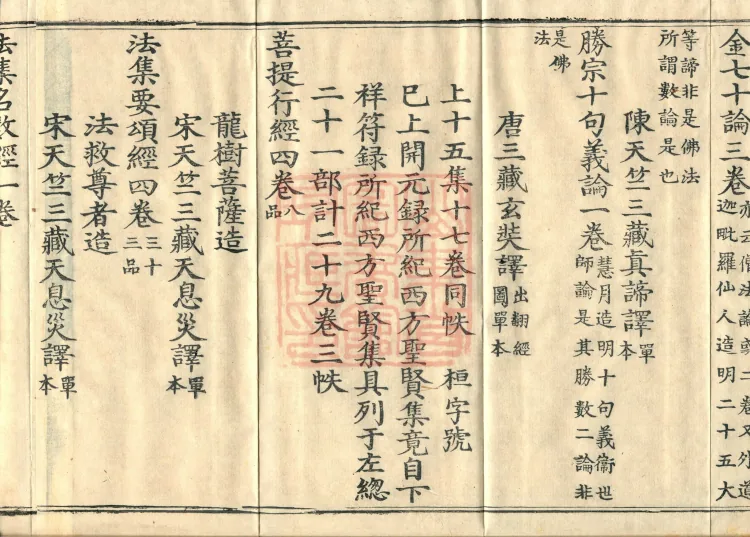 金七十論三卷亦云僧法論或二卷又外道迦毗羅仙人造明二十五大
等諦非是佛法所謂數論是也
陳天竺三藏真諦譯單本
勝宗十句義論一卷慧月造明十句義衞也師論是其勝數二論非
是佛法
唐三藏玄奘譯出翻經圖單本
上十五集十七卷同帙 桓字號
已上開元録所紀西方聖賢集竟自下
祥符録所紀西方聖賢集具列于左總
二十一部計二十九卷三帙
菩提行經四卷八品
龍樹菩薩造
宋天竺三藏天息災譯單本
法集要頌經四卷三十三品
法救尊者造
宋天竺三藏天息災譯單本
法集名數經一卷